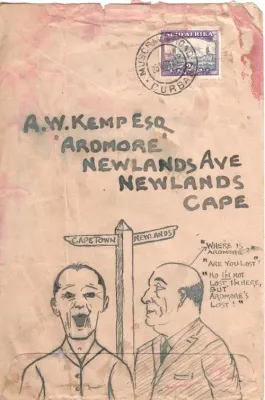 SUID-AFRIKA
A.W. KEMP ESQ
'ARDMORE'
NEWLANDS AVE
NEWLANDS
CAPE
CAPETOWN
NEWLANDS
"WHERE IS
ARDMORE?"
"ARE YOU LOST"
"NO I'M NOT
LOST I'M HERE,
BUT
ARDMORE'S
LOST!"